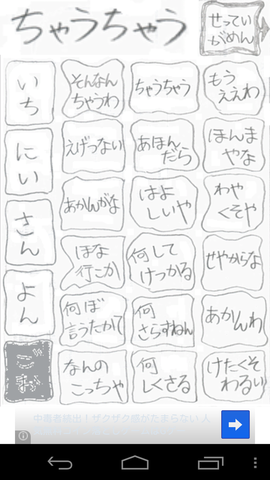 ちゃうちゃう
せってい
がめん
いち
そんなん
ちゃうわ
ちゃうちゃう
もう
ええわ
にい
えげつない
あほん
だら
ほんま
やな
さん
あかんがな
はよ
しいや
わや
くそや
よん
ほな
行こか
何して
けつかる
せやからな
何ぼ
言うたかて
何
さらすねん
あかんわ
ごぉ
なんの
こっちゃ
何
しくさる
けたくそ
わるい